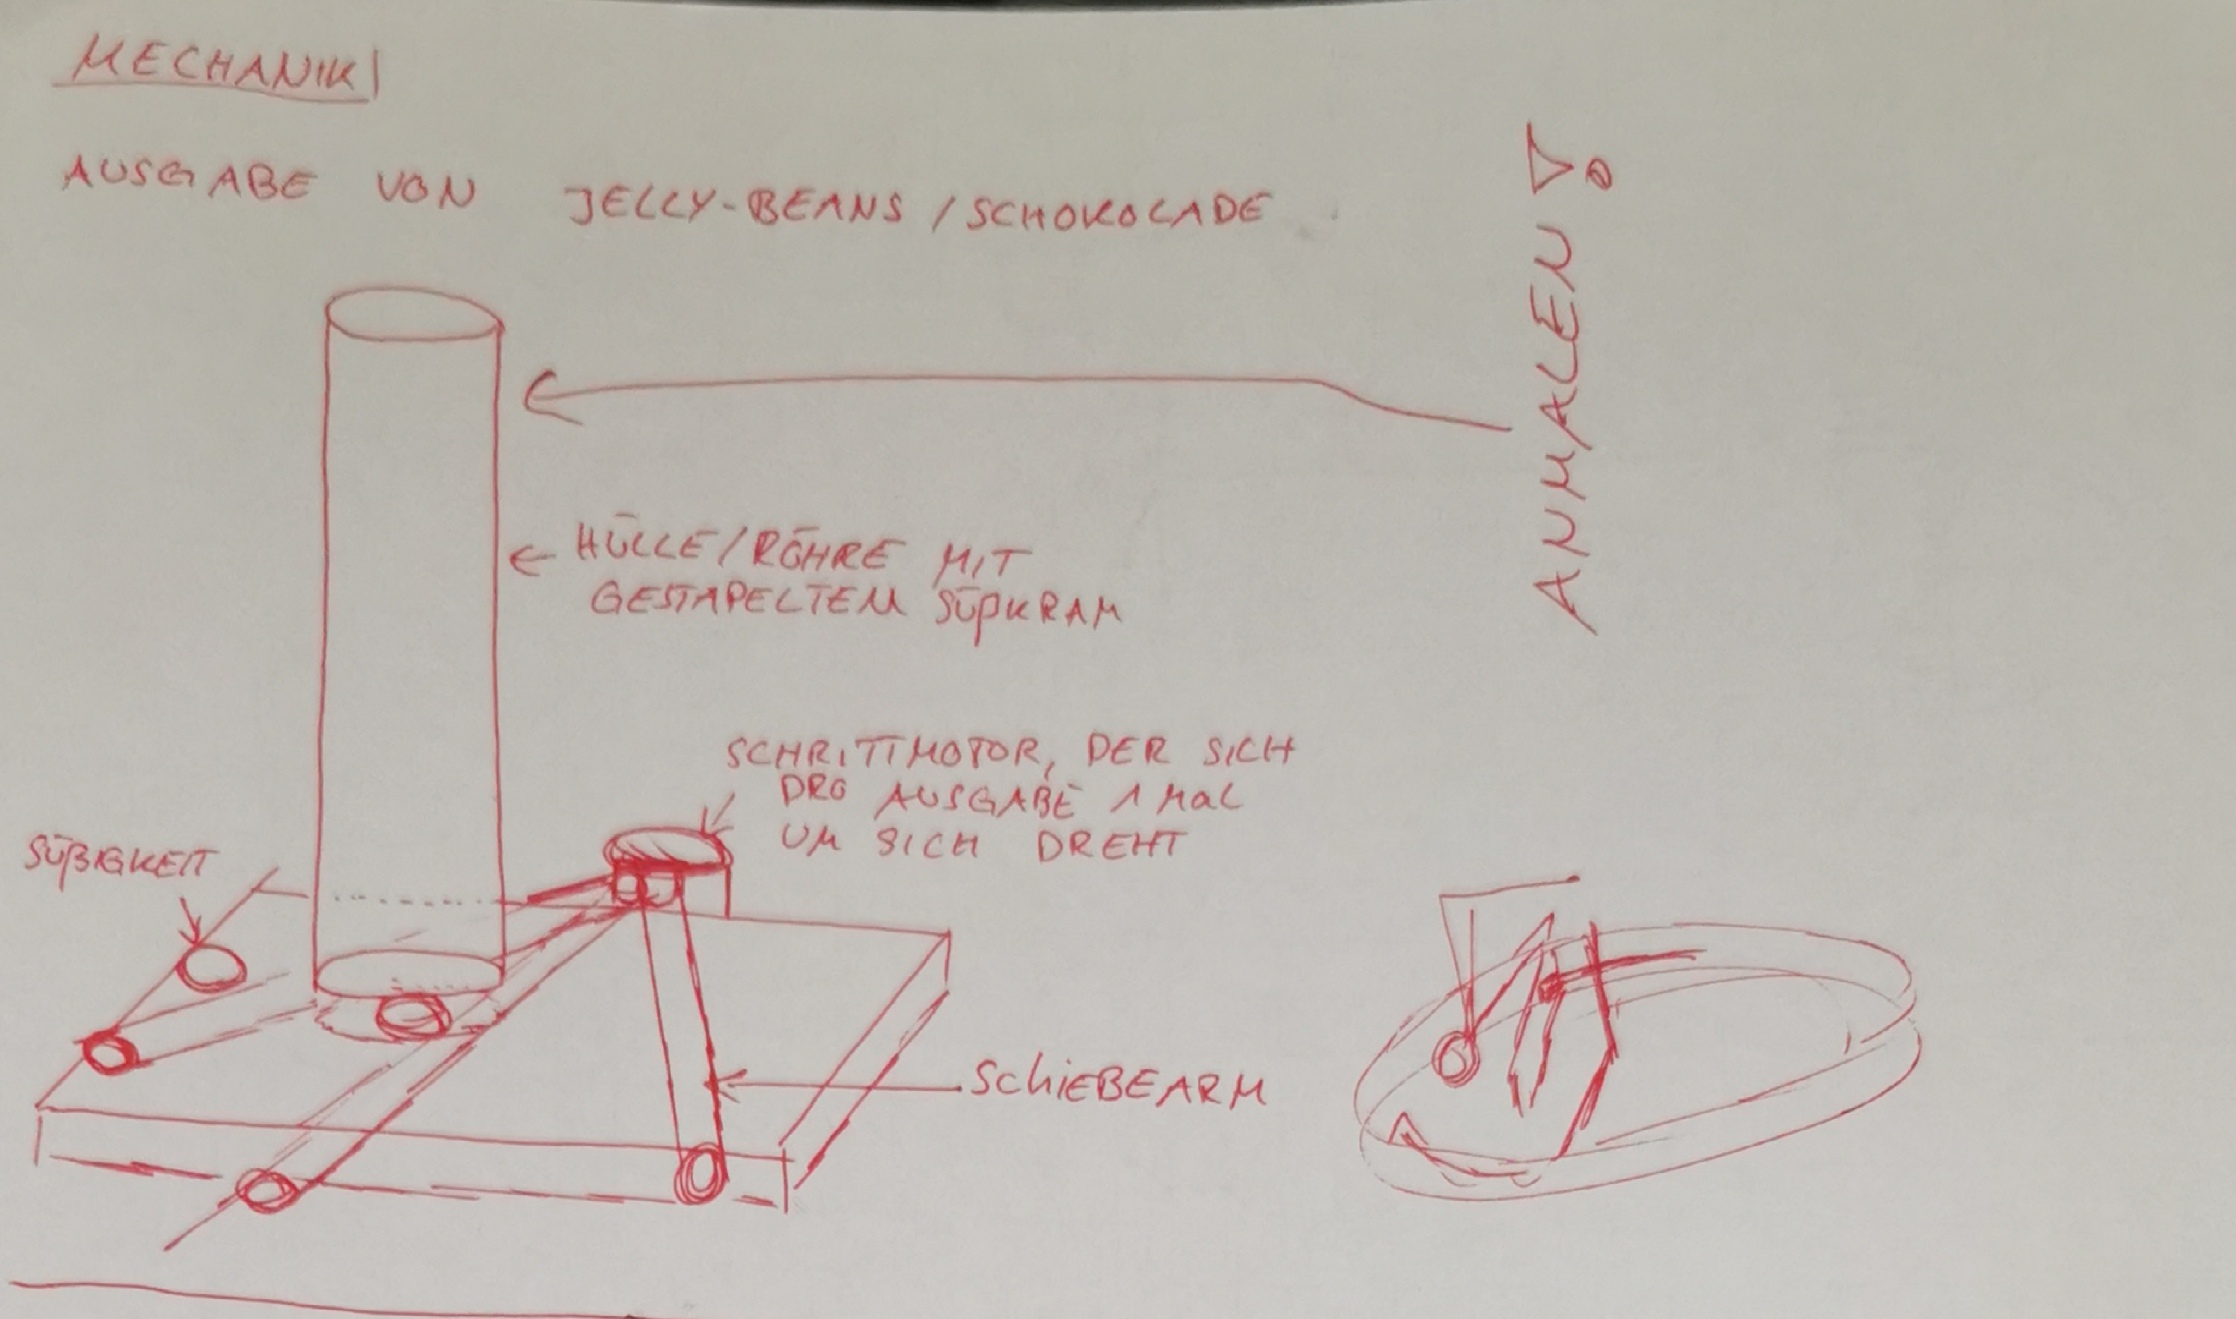 MECHANIK
AUSGABE VON JELLY-BEANS / SCHOKOLADE
ANMALEN!
HÜLLE/RÖHRE MIT
GESTAPELTEM SÜßKRAM
SCHRITTMOTOR, DER SICH
PRO AUSGABE 1 MAL
UM SICH DREHT
SÜßIGKEIT
SCHIEBEARM